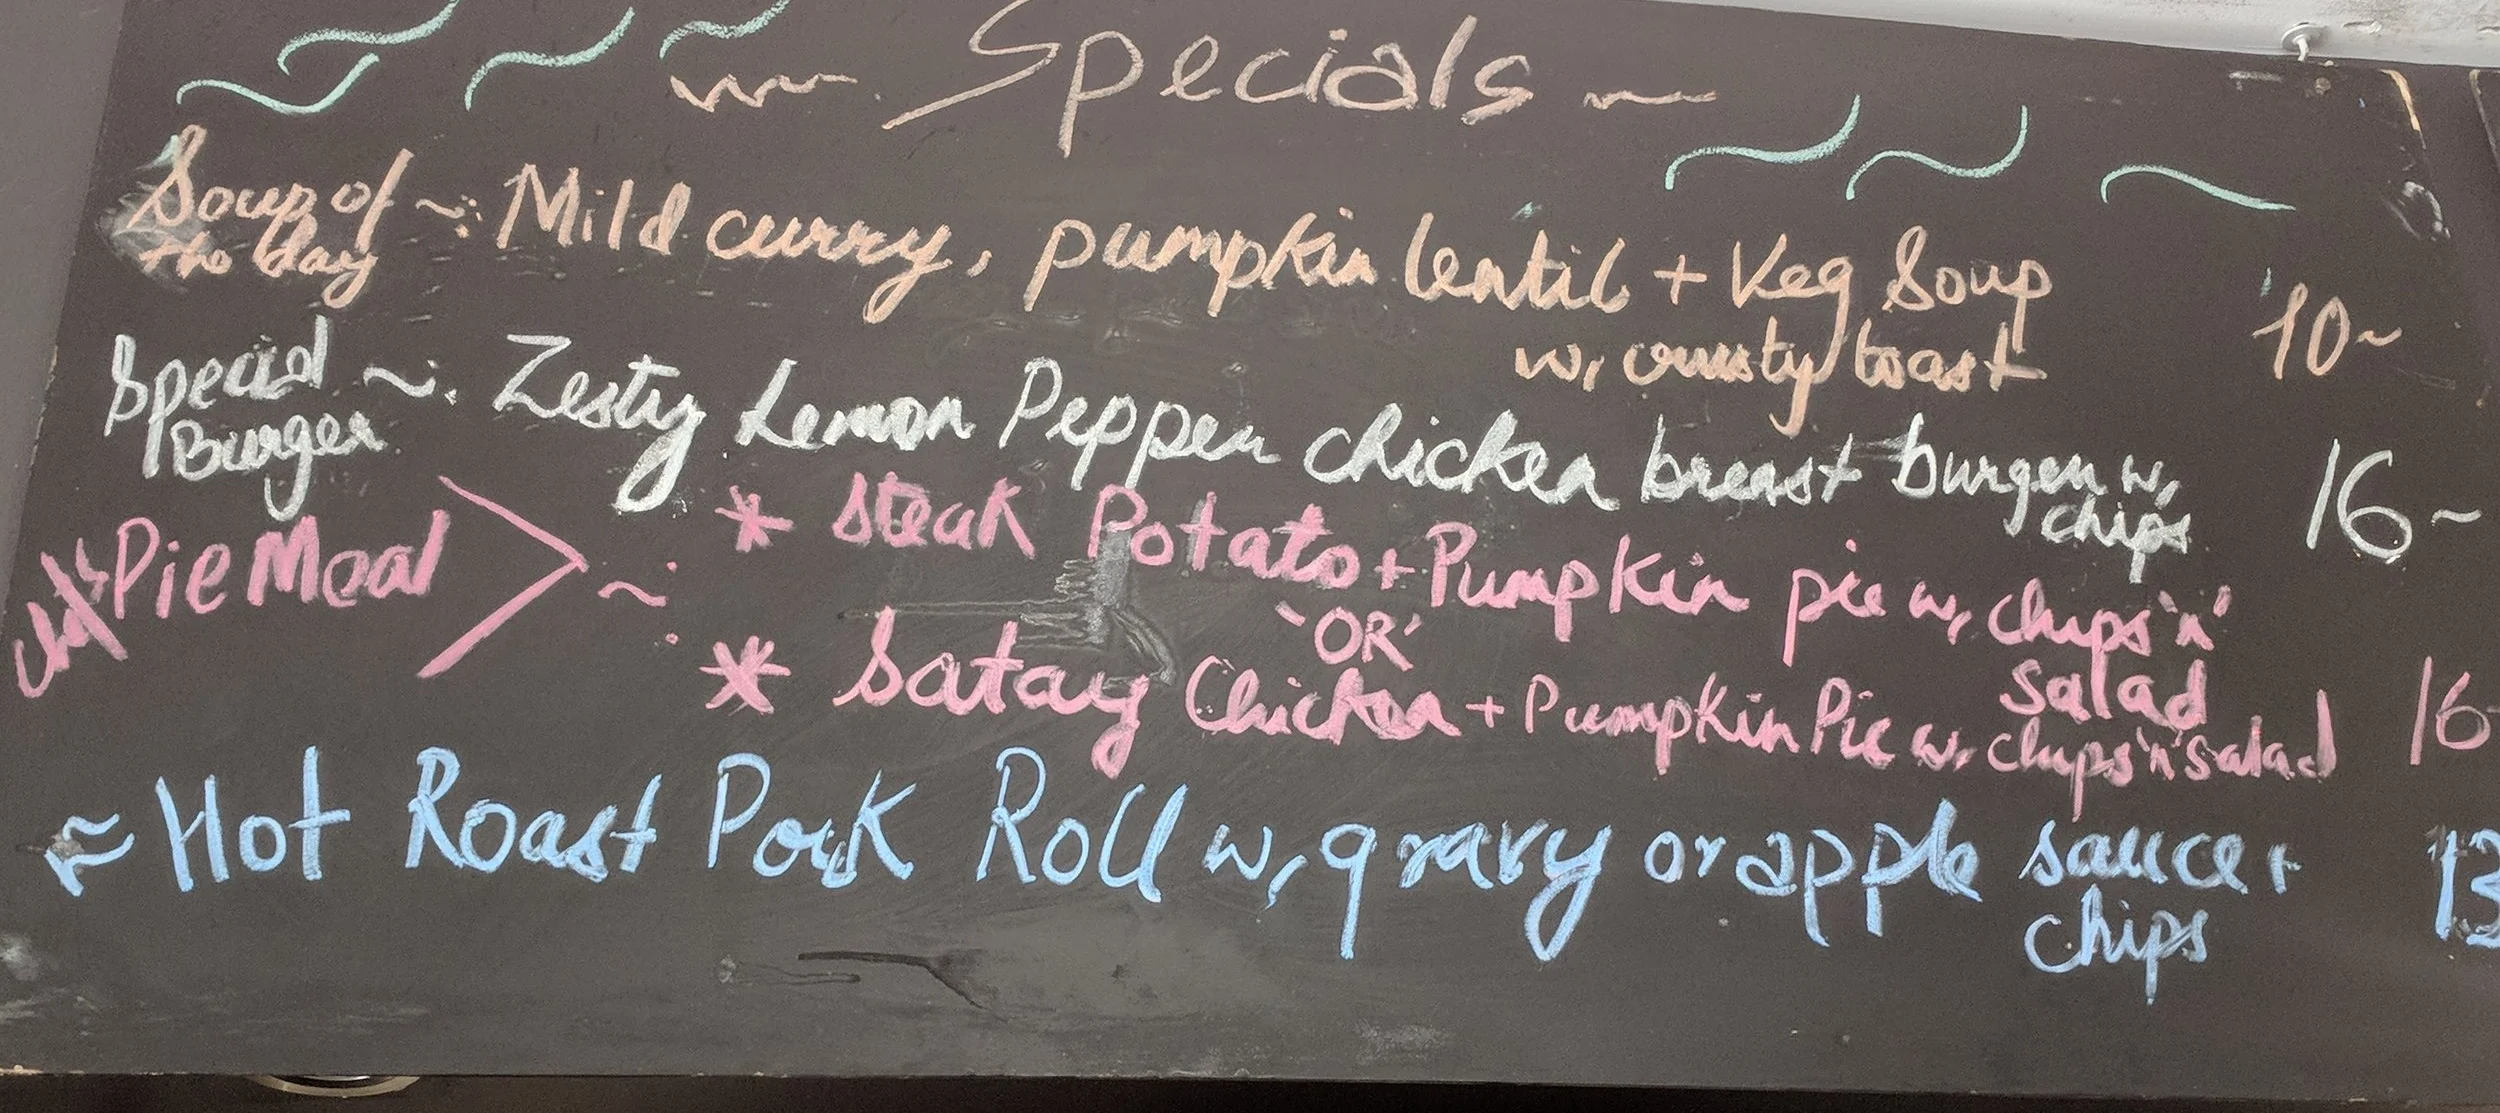 Specials
Soup of ~: Mild curry, pumpkin lentil + Veg Soup
the day
w, crusty toast 10~
Special ~: Zesty Lemon Pepper chicken breast burger w,
Burger
chips 16~
Chef's Pie Meal > ~: * Steak Potato + Pumpkin pie w, chips 'n'
'OR'
salad
* Satay Chicken + Pumpkin Pie w, chips 'n' salad 16-
~ Hot Roast Pork Roll w, gravy or apple sauce +
chips 13